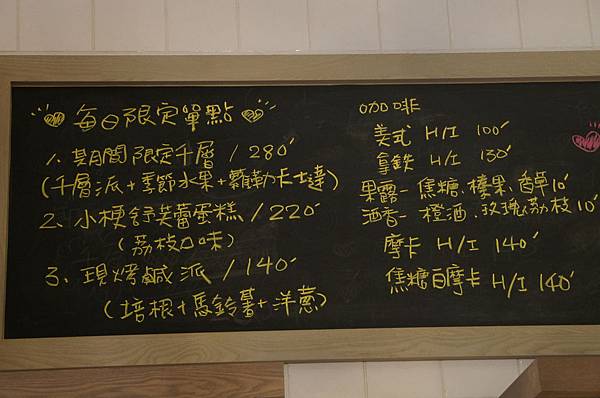 每日限定單點
1. 期間限定千層 / 280
(千層派+季節水果+覇勒卡士達)
2. 小梗舒芙蕾蛋糕 / 220
(荔枝口味)
3. 現烤鹹派 / 140
(培根+馬鈴薯+洋蔥)
咖啡
美式 H/I 100
拿鐵 H/I 130
果露-焦糖.榛果.香草10
酒香-橙酒.玫瑰荔枝10
摩卡 H/I 140
焦糖白摩卡 H/I 140